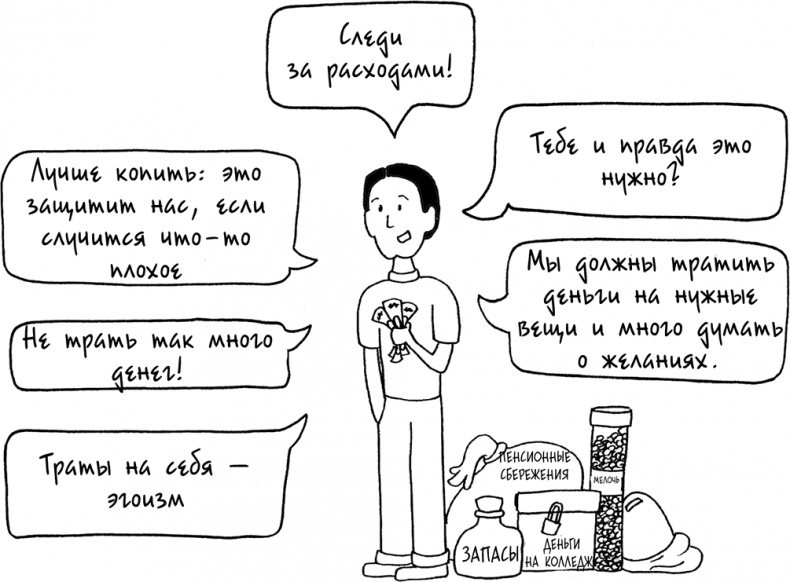 Следи
за расходами!
Тебе и правда это
нужно?
Лучше копить: это
защитит нас, если
случится что-то
плохое
Мы должны тратить
деньги на нужные
вещи и много думать
о желаниях.
Не трать так много
денег!
Траты на себя –
эгоизм
ПЕНСИОННЫЕ
СБЕРЕЖЕНИЯ
МЕЛОЧЬ
ЗАПАСЫ
ДЕНЬГИ
НА КОЛЛЕДЖ